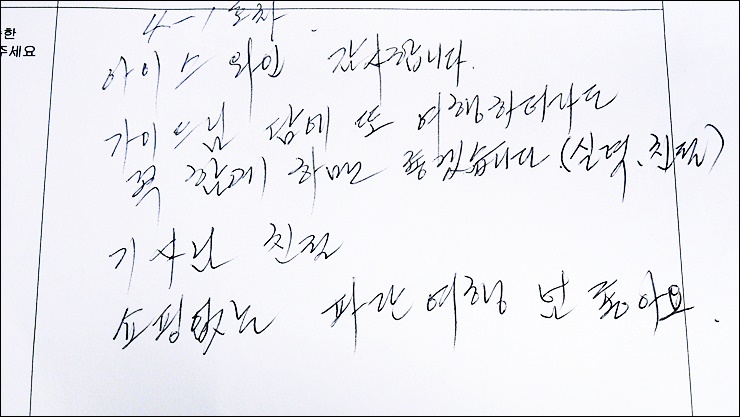 한
주세요
4-1호차.
아이스 와인 감사합니다.
가이드님 담에 또 여행하더라도
꼭 함께 하면 좋겠습니다 (실력, 친절)
기사님 친절
쇼핑없는 파란여행 넘 좋아요.